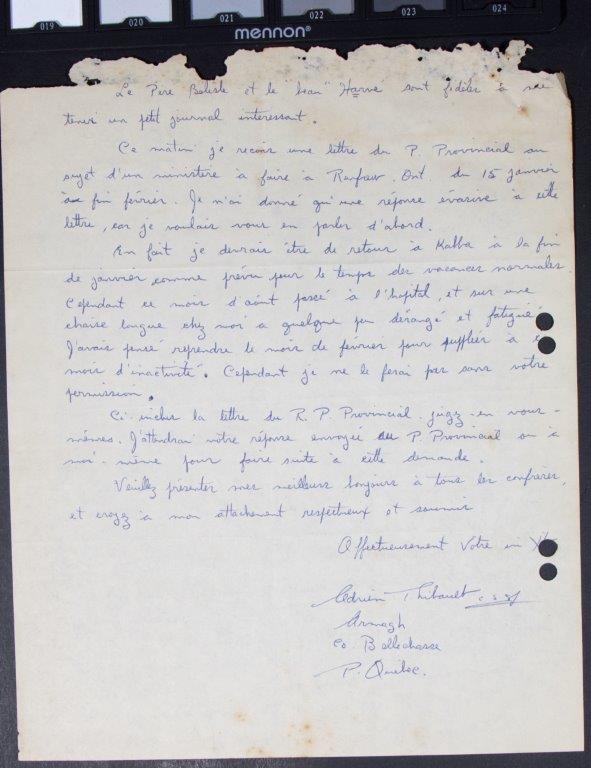 019 020 021 022 023 024
mennon®
Le Père Belisle et le "beau" Hervé sont fidèles à me
tenir un petit journal interessant.
Ce matin je recois une lettre du P. Provincial au
sujet d'un ministère à faire à Renfrew. Ont. du 15 janvier
à fin février. Je n'ai donné qu'une réponse évasive à cette
lettre, car je voulais vous en parler d'abord.
En fait je devrais être de retour à Kalba à la fin
de janvier, comme prévu pour le temps des vacances normales.
Cependant ce mois d'août passé à l'hopital, et sur une
chaise longue chez moi a quelque peu dérangé et fatigué
J'avais pensé reprendre le mois de février pour suppléer à
mois d'inactivité. Cependant je ne le ferai pas sans votre
permission.
Ci-inclus la lettre du R. P. Provincial. jugez-en vous-
mêmes. J'attendrai votre réponse envoyée au P. Provincial ou à
moi-même pour faire suite à cette demande.
Veuillez présenter mes meilleurs bonjours à tous les confrères,
et croyez à mon attachement respectueux et soumis
Affectueusement Votre en
Adrien Thibault c.s.sp
Armagh
Co. Bellechasse
P. Québec.